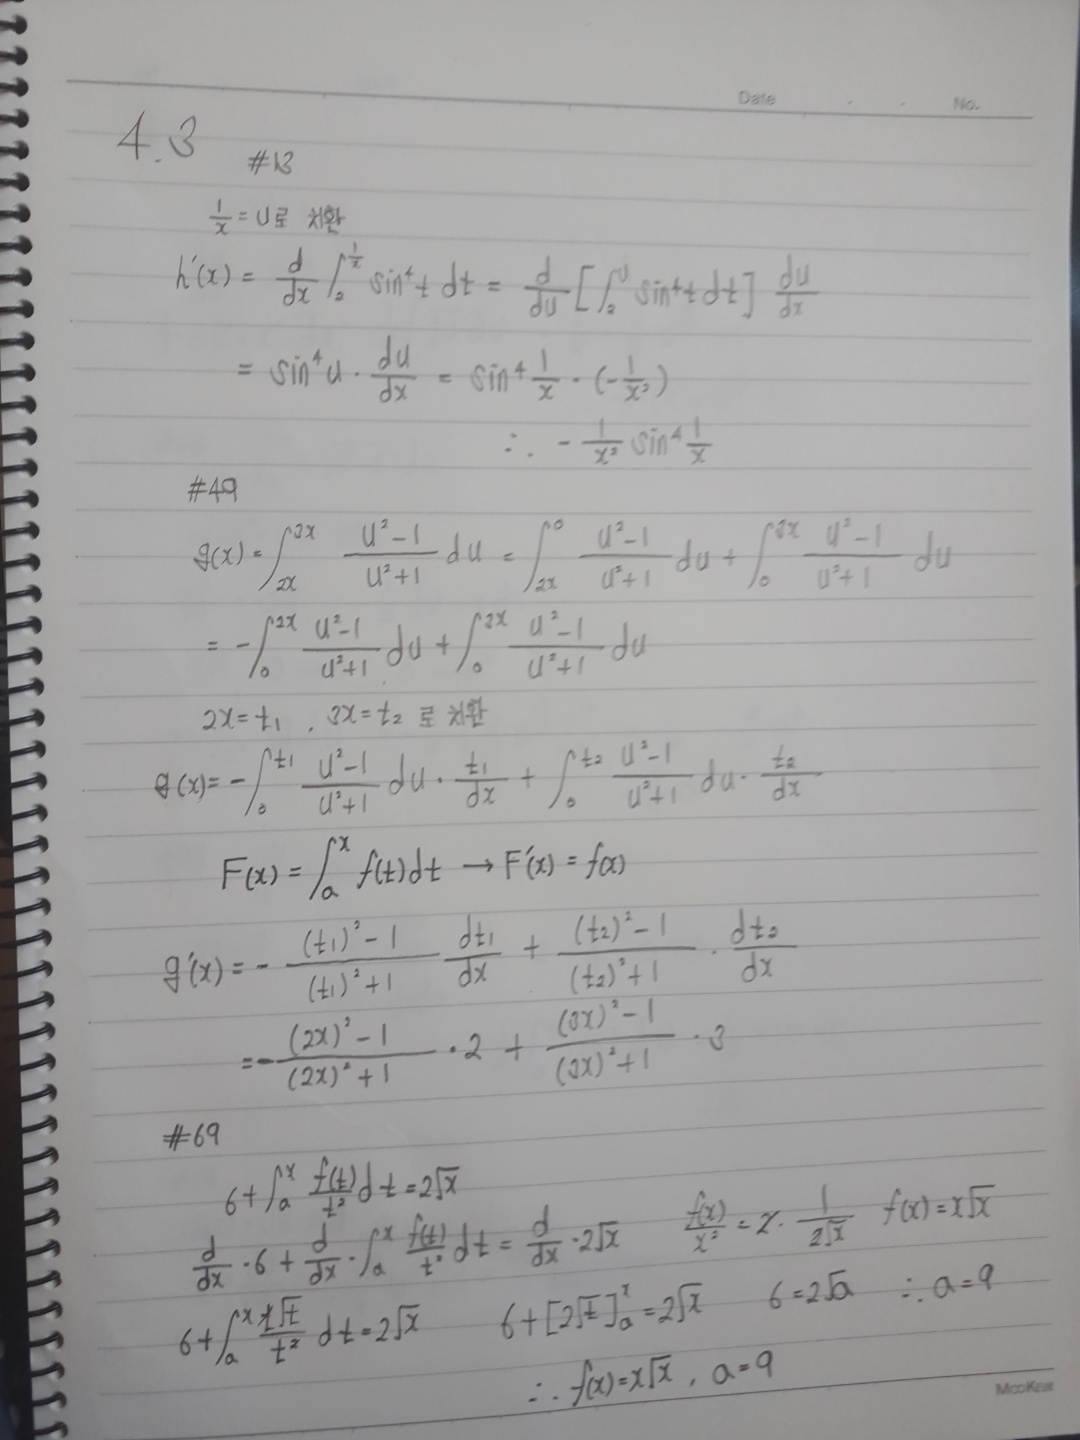 Date . . No.
4.3 #13
1/x = u로 치환
h'(x) = d/dx ∫₂^(1/x) sin⁴t dt = d/du [∫₂^u sin⁴t dt] du/dx
= sin⁴u · du/dx = sin⁴ 1/x · (-1/x²)
∴ -1/x² sin⁴ 1/x
#49
g(x) = ∫_(2x)^(3x) (u²-1)/(u²+1) du = ∫_(2x)^0 (u²-1)/(u²+1) du + ∫₀^(3x) (u²-1)/(u²+1) du
= -∫₀^(2x) (u²-1)/(u²+1) du + ∫₀^(3x) (u²-1)/(u²+1) du
2x = t₁ , 3x = t₂ 로 치환
g(x) = -∫₀^(t₁) (u²-1)/(u²+1) du · t₁/dx + ∫₀^(t₂) (u²-1)/(u²+1) du · t₂/dx
F(x) = ∫ₐ^x f(t)dt → F'(x) = f(x)
g'(x) = - ((t₁)²-1)/((t₁)²+1) dt₁/dx + ((t₂)²-1)/((t₂)²+1) · dt₂/dx
= - ((2x)²-1)/((2x)²+1) · 2 + ((3x)²-1)/((3x)²+1) · 3
#69
6 + ∫ₐ^x f(t)/t² dt = 2√x
d/dx · 6 + d/dx · ∫ₐ^x f(t)/t² dt = d/dx · 2√x f(x)/x² = 2 · 1/(2√x) f(x) = x√x
6 + ∫ₐ^x t√t/t² dt = 2√x 6 + [2√t]ₐ^x = 2√x 6 = 2√a ∴ a = 9
∴ f(x) = x√x , a = 9
MOOKEUK